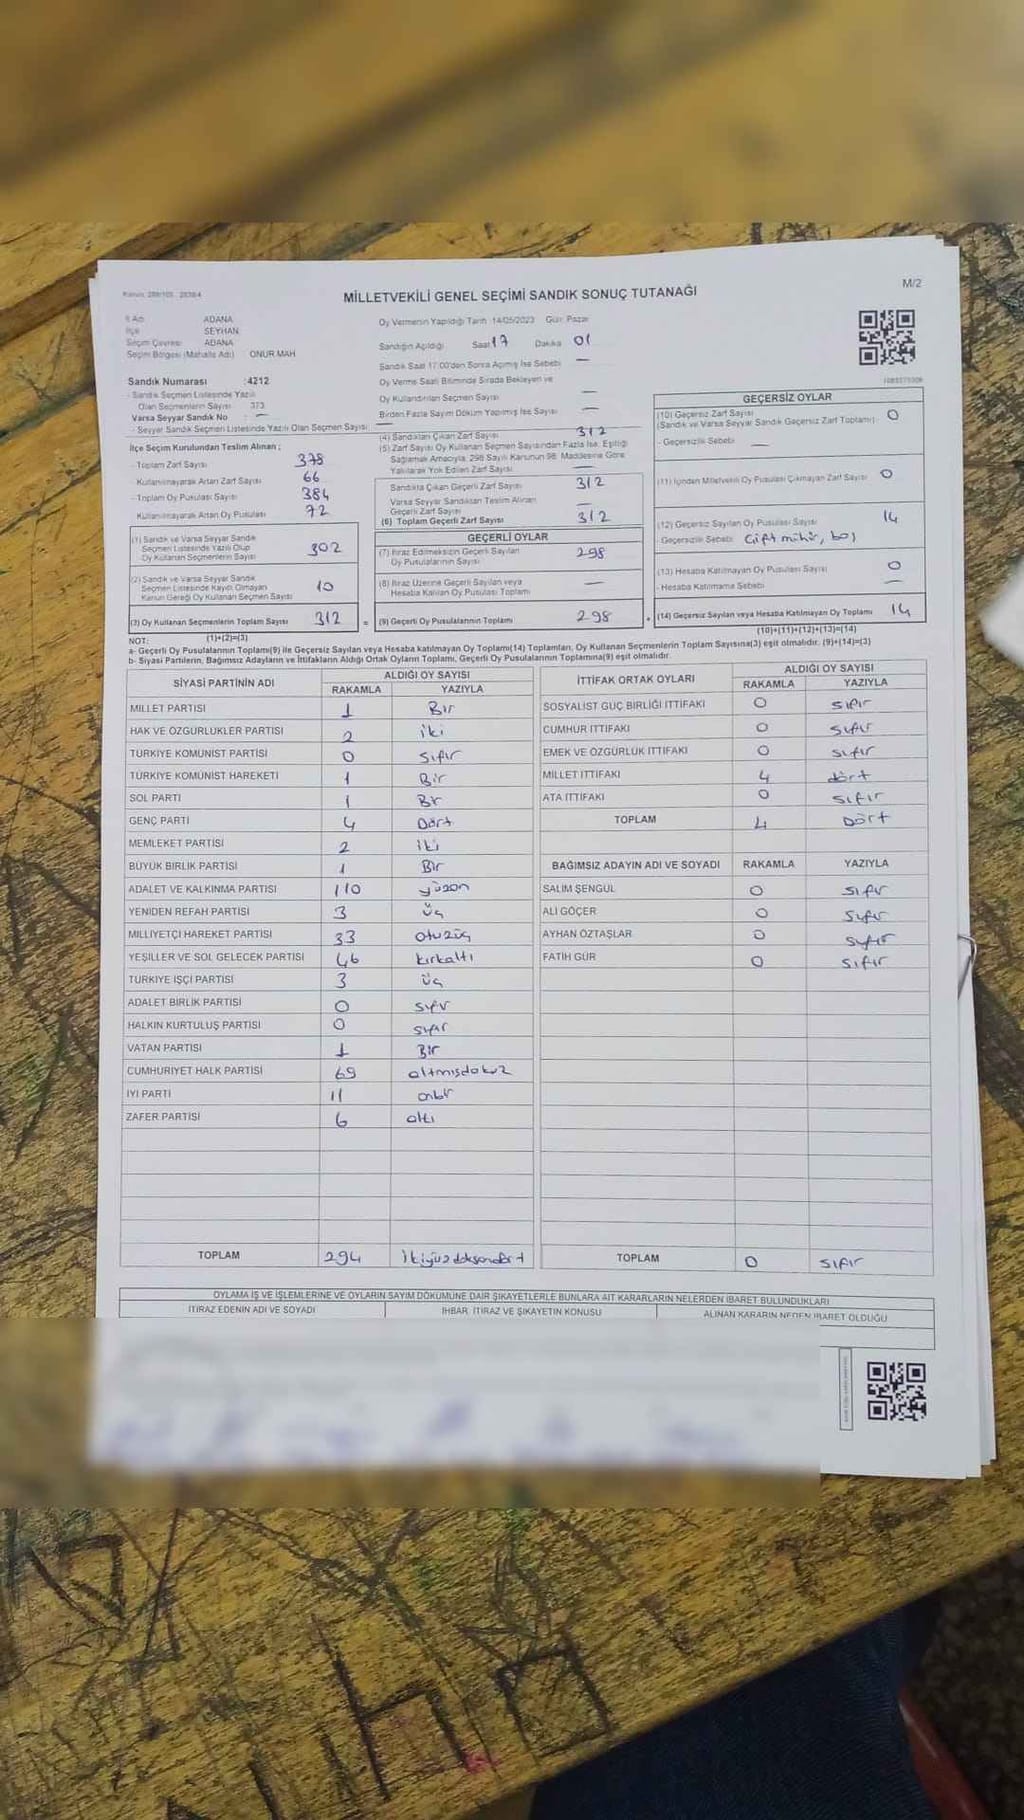 MİLLETVEKİLİ GENEL SEÇİMİ SANDIK SONUÇ TUTANAĞI
M/2
İl Adı ADANA
İlçe SEYHAN
Seçim Çevresi ADANA
Seçim Bölgesi (Mahalle Adı) ONUR MAH
Oy Vermenin Yapıldığı Tarih 14/05/2023 Gün: Pazar
Sandığın Açıldığı Saat 17 Dakika 01
Sandık Saat 17:00'den Sonra Açılmış İse Sebebi —
Oy Verme Saati Bitiminde Sırada Bekleyen ve
Oy Kullandırılan Seçmen Sayısı —
Birden Fazla Sayım Döküm Yapılmış İse Sayısı —
Sandık Numarası :4212
- Sandık Seçmen Listesinde Yazılı
Olan Seçmenlerin Sayısı 373
Varsa Seyyar Sandık No : —
- Seyyar Sandık Seçmen Listesinde Yazılı Olan Seçmen Sayısı: —
İlçe Seçim Kurulundan Teslim Alınan ;
- Toplam Zarf Sayısı 378
Kullanılmayarak Artan Zarf Sayısı 66
- Toplam Oy Pusulası Sayısı 384
Kullanılmayarak Artan Oy Pusulası 72
(1) Sandık ve Varsa Seyyar Sandık
Seçmen Listesinde Yazılı Olup
Oy Kullanan Seçmenlerin Sayısı 302
(2) Sandık ve Varsa Seyyar Sandık
Seçmen Listesinde Kayıtlı Olmayan
Kanun Gereği Oy Kullanan Seçmen Sayısı 10
(3) Oy Kullanan Seçmenlerin Toplam Sayısı 312 =
(1)+(2)=(3)
(4) Sandıktan Çıkan Zarf Sayısı 312
(5) Zarf Sayısı Oy Kullanan Seçmen Sayısından Fazla İse, Eşitliği
Sağlamak Amacıyla, 298 Sayılı Kanunun 98. Maddesine Göre
Yakılarak Yok Edilen Zarf Sayısı —
Sandıkta Çıkan Geçerli Zarf Sayısı 312
Varsa Seyyar Sandıktan Teslim Alınan
Geçerli Zarf Sayısı —
(6) Toplam Geçerli Zarf Sayısı 312
GEÇERLİ OYLAR
(7) İtiraz Edilmeksizin Geçerli Sayılan
Oy Pusulalarının Sayısı 298
(8) İtiraz Üzerine Geçerli Sayılan veya
Hesaba Katılan Oy Pusulası Toplamı —
(9) Geçerli Oy Pusulalarının Toplamı 298 +
GEÇERSİZ OYLAR
(10) Geçersiz Zarf Sayısı
(Sandık ve Varsa Seyyar Sandık Geçersiz Zarf Toplamı) 0
- Geçersizlik Sebebi —
(11) İçinden Milletvekili Oy Pusulası Çıkmayan Zarf Sayısı 0
(12) Geçersiz Sayılan Oy Pusulası Sayısı 14
- Geçersizlik Sebebi Çift mühür, boş
(13) Hesaba Katılmayan Oy Pusulası Sayısı 0
- Hesaba Katılmama Sebebi —
(14) Geçersiz Sayılan veya Hesaba Katılmayan Oy Toplamı 14
(10)+(11)+(12)+(13)=(14)
NOT:
a- Geçerli Oy Pusulalarının Toplamı(9) ile Geçersiz Sayılan veya Hesaba katılmayan Oy Toplamı(14) Toplamları, Oy Kullanan Seçmenlerin Toplam Sayısına(3) eşit olmalıdır. (9)+(14)=(3)
b- Siyasi Partilerin, Bağımsız Adayların ve İttifakların Aldığı Ortak Oyların Toplamı, Geçerli Oy Pusulalarının Toplamına(9) eşit olmalıdır.
SİYASİ PARTİNİN ADI ALDIĞI OY SAYISI
RAKAMLA YAZIYLA
MİLLET PARTİSİ 1 Bir
HAK VE ÖZGÜRLÜKLER PARTİSİ 2 iki
TÜRKİYE KOMÜNİST PARTİSİ 0 sıfır
TÜRKİYE KOMÜNİST HAREKETİ 1 Bir
SOL PARTİ 1 Bir
GENÇ PARTİ 4 Dört
MEMLEKET PARTİSİ 2 iki
BÜYÜK BİRLİK PARTİSİ 1 Bir
ADALET VE KALKINMA PARTİSİ 110 yüzon
YENİDEN REFAH PARTİSİ 3 üç
MİLLİYETÇİ HAREKET PARTİSİ 33 otuzüç
YEŞİLLER VE SOL GELECEK PARTİSİ 46 kırkaltı
TÜRKİYE İŞÇİ PARTİSİ 3 üç
ADALET BİRLİK PARTİSİ 0 sıfır
HALKIN KURTULUŞ PARTİSİ 0 sıfır
VATAN PARTİSİ 1 Bir
CUMHURİYET HALK PARTİSİ 69 altmışdokuz
İYİ PARTİ 11 onbir
ZAFER PARTİSİ 6 altı
TOPLAM 294 ikiyüzdoksandört
İTTİFAK ORTAK OYLARI ALDIĞI OY SAYISI
RAKAMLA YAZIYLA
SOSYALİST GÜÇ BİRLİĞİ İTTİFAKI 0 sıfır
CUMHUR İTTİFAKI 0 sıfır
EMEK VE ÖZGÜRLÜK İTTİFAKI 0 sıfır
MİLLET İTTİFAKI 4 dört
ATA İTTİFAKI 0 sıfır
TOPLAM 4 Dört
BAĞIMSIZ ADAYIN ADI VE SOYADI RAKAMLA YAZIYLA
SALİM ŞENGÜL 0 sıfır
ALİ GÖÇER 0 sıfır
AYHAN ÖZTAŞLAR 0 sıfır
FATİH GÜR 0 sıfır
TOPLAM 0 sıfır
OYLAMA İŞ VE İŞLEMLERİNE VE OYLARIN SAYIM DÖKÜMÜNE DAİR ŞİKAYETLERLE BUNLARA AİT KARARLARIN NELERDEN İBARET BULUNDUKLARI
İTİRAZ EDENİN ADI VE SOYADI İHBAR, İTİRAZ VE ŞİKAYETİN KONUSU ALINAN KARARIN NEDEN İBARET OLDUĞU